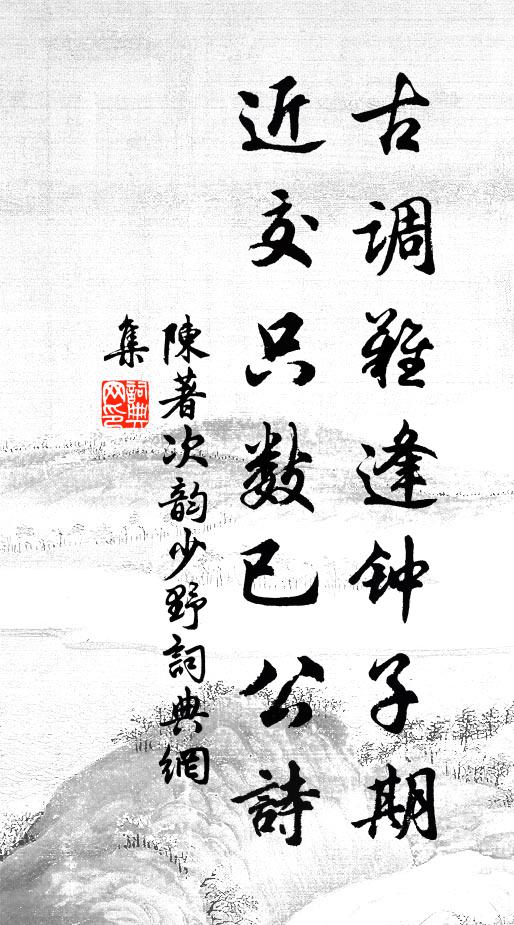 古调难逢钟子期
近交只数已公詩
陳著次韵少野詞典網
集
詞典
网印